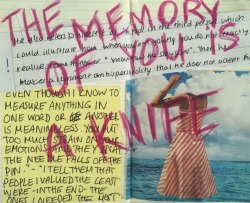 THE MEMORY
She also refers to herself as in the third person which
could illustrate how when you're you do not exactly
realize or "know Then he
makes a comment on his personality that he does not accept
OF YOU IS
A KNIFE
EVEN THOUGH I KNOW TO
MEASURE ANYTHING IN
ONE WORD OR
IS MEANINGLESS. YOU PUT
TOO MUCH STRAIN ON YOUR
EMOTIONS AND THEY WHAT
THE NEEDLE FALLS OFF THE
PIN." - "I TELL THEM THAT
PEOPLE I VALUED THE LEAST
WERE - IN THE END - THE
ONES I NEEDED THE